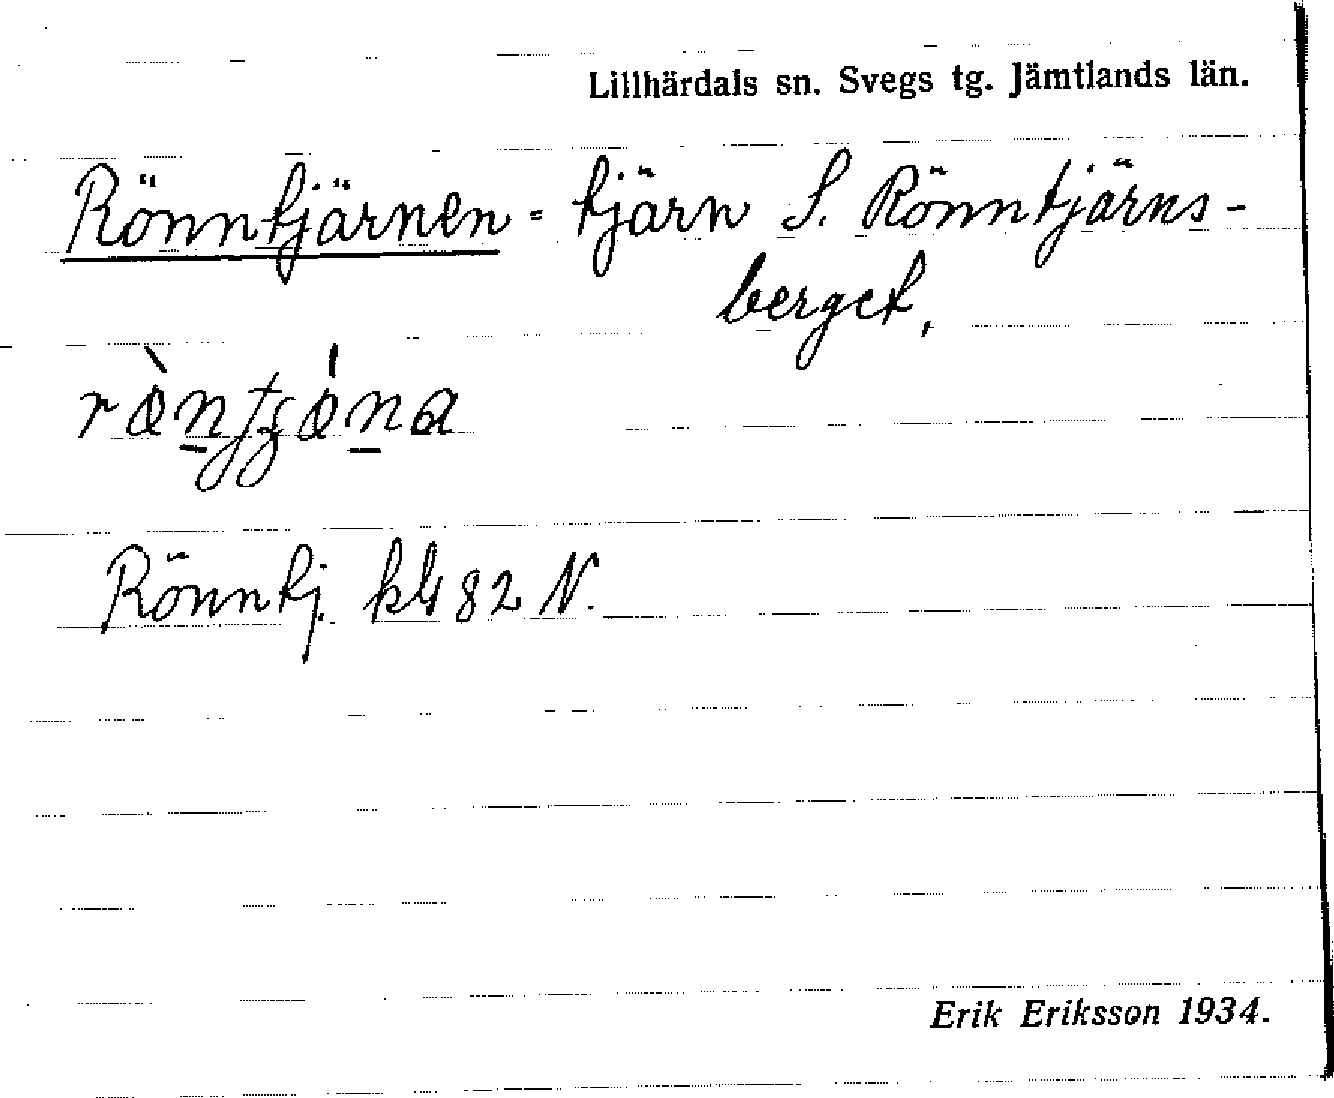 Lillhärdals sn. Svegs tg. Jämtlands län.
Rönntjärnen = tjärn S. Rönntjärns-
berget,
Rönntj. kbl 82 N.
Erik Eriksson 1934.